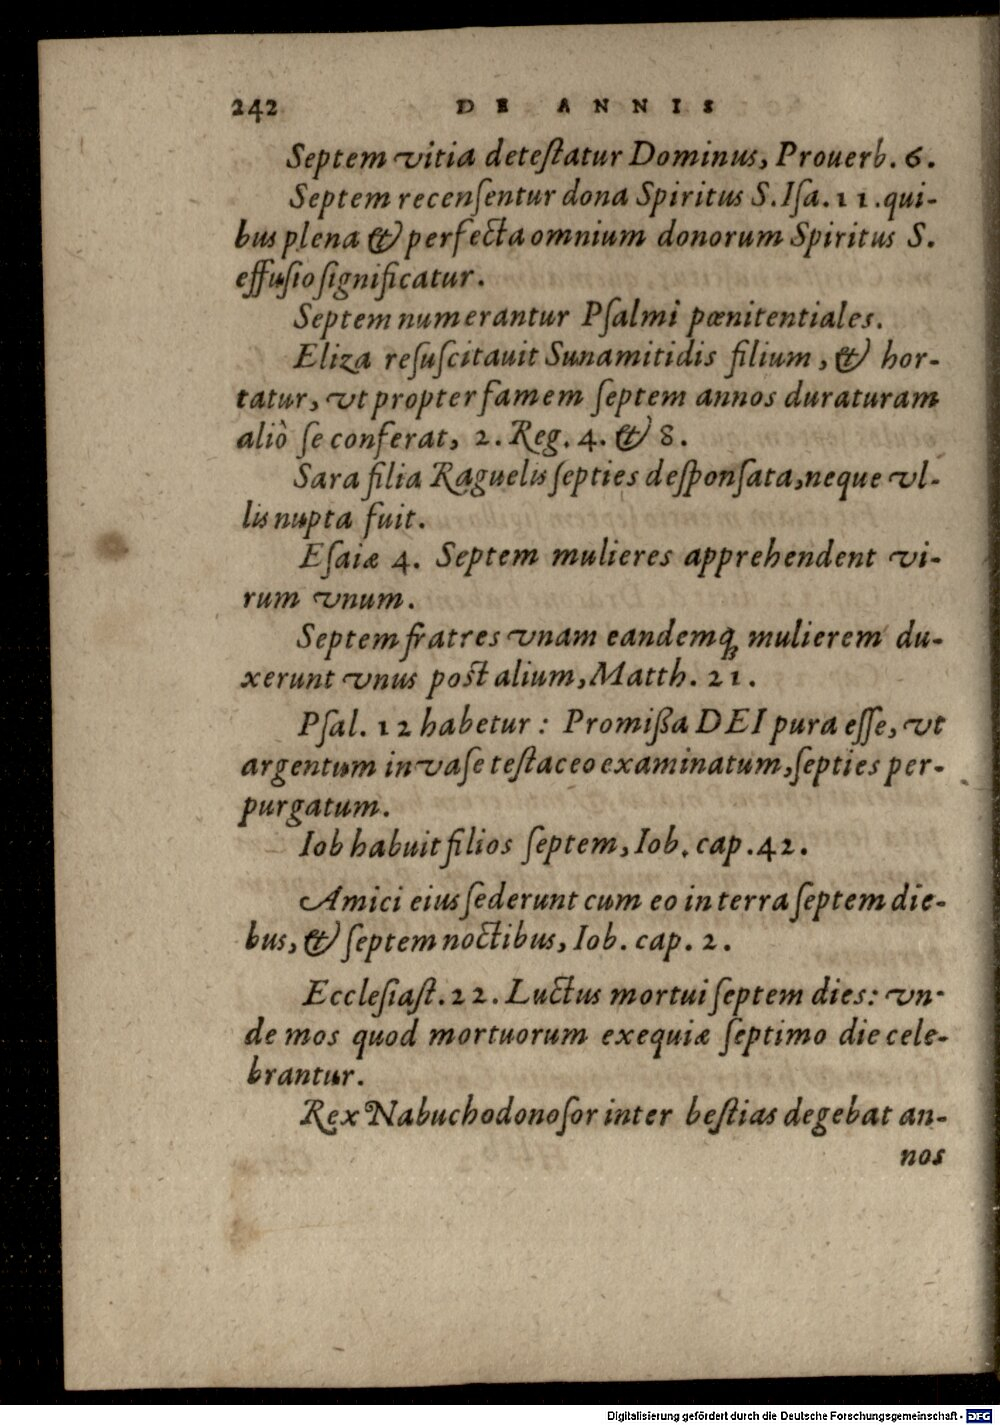 242 DE ANNIS
Septem vitia deteſtatur Dominus, Prouerb. 6.
Septem recenſentur dona Spiritus S. Iſa. 11. qui-
bus plena & perfecta omnium donorum Spiritus S.
effuſio ſignificatur.
Septem numerantur Pſalmi pœnitentiales.
Eliza reſuſcitauit Sunamitidis filium, & hor-
tatur, vt propter famem ſeptem annos duraturam
aliò ſe conferat, 2. Reg. 4. & 8.
Sara filia Raguelis ſepties deſponſata, neque vl-
lis nupta fuit.
Eſaiæ 4. Septem mulieres apprehendent vi-
rum vnum.
Septem fratres vnam eandemq́ꝫ mulierem du-
xerunt vnus poſt alium, Matth. 21.
Pſal. 12 habetur: Promißa DEI pura eſſe, vt
argentum in vaſe teſtaceo examinatum, ſepties per-
purgatum.
Iob habuit filios ſeptem, Iob. cap. 42.
Amici eius ſederunt cum eo in terra ſeptem die-
bus, & ſeptem noctibus, Iob. cap. 2.
Eccleſiaſt. 22. Luctus mortui ſeptem dies: vn-
de mos quod mortuorum exequiæ ſeptimo die cele-
brantur.
Rex Nabuchodonoſor inter beſtias degebat an-
nos
Digitalisierung gefördert durch die Deutsche Forschungsgemeinschaft - DFG